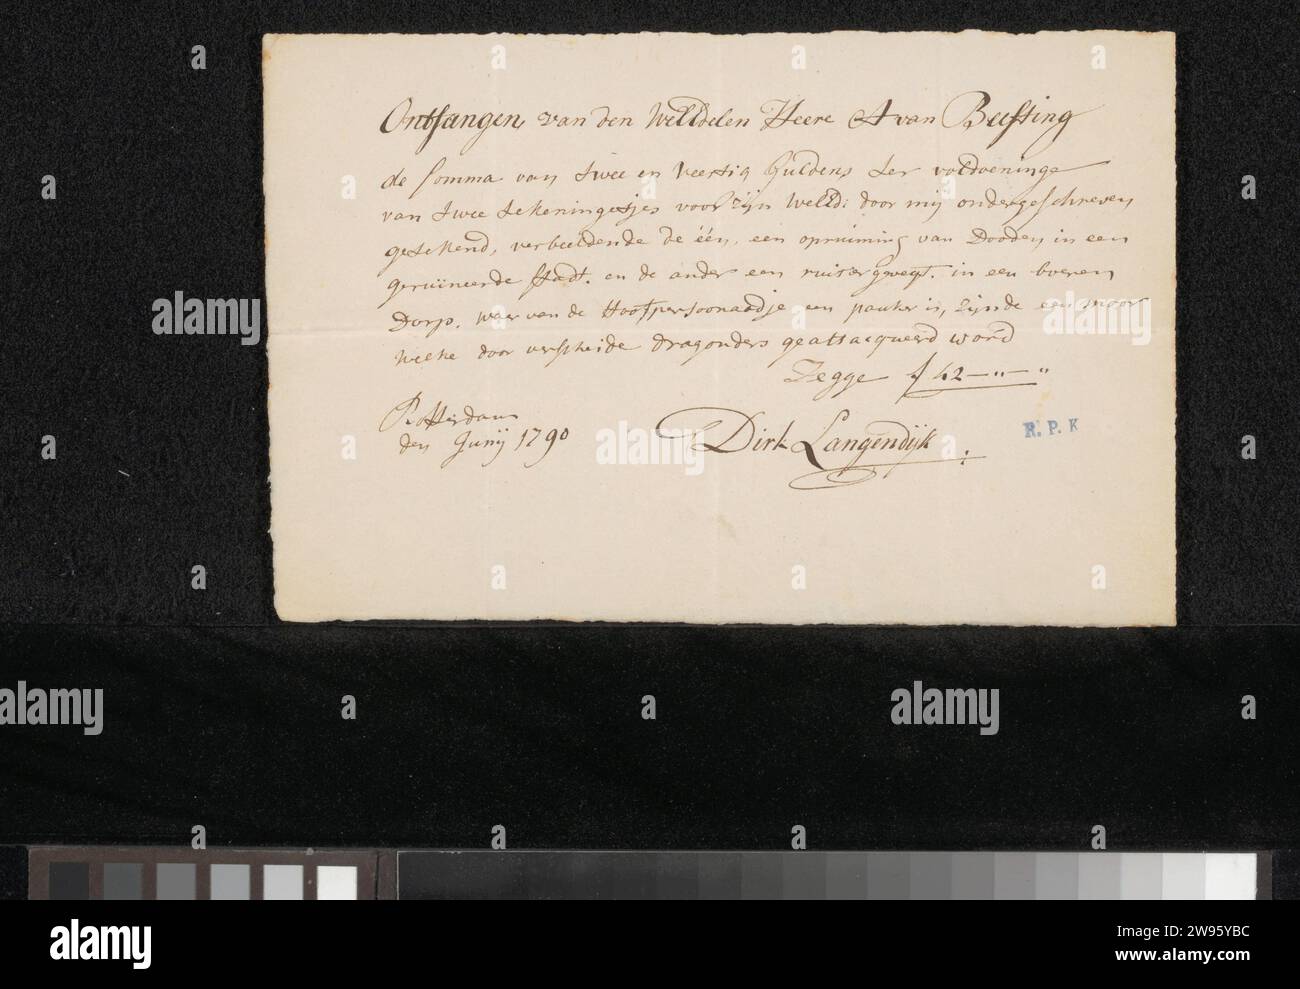 Ontfangen van den WelEdelen Heere A van Beefting
de somma van twee en veertig Guldens ter voldoeninge
van twee tekeningetjes voor zijn WelEd: door mij ondergeschreven
getekend, verbeeldende de één, een opruiming van Dooden in een
geruineerde stadt. en de ander een ruitergevegt. in een boeren
Dorp. waar van de Hoofpersoonaadje een pauker is, zijnde een moor
welke door verscheide dragonders geattacqueerd word
Zegge f 42 — " — "
Rotterdam
den Junij 1790
Dirk Langendijk
R. P. K
alamy
Image ID: 2W95YBC
www.alamy.com